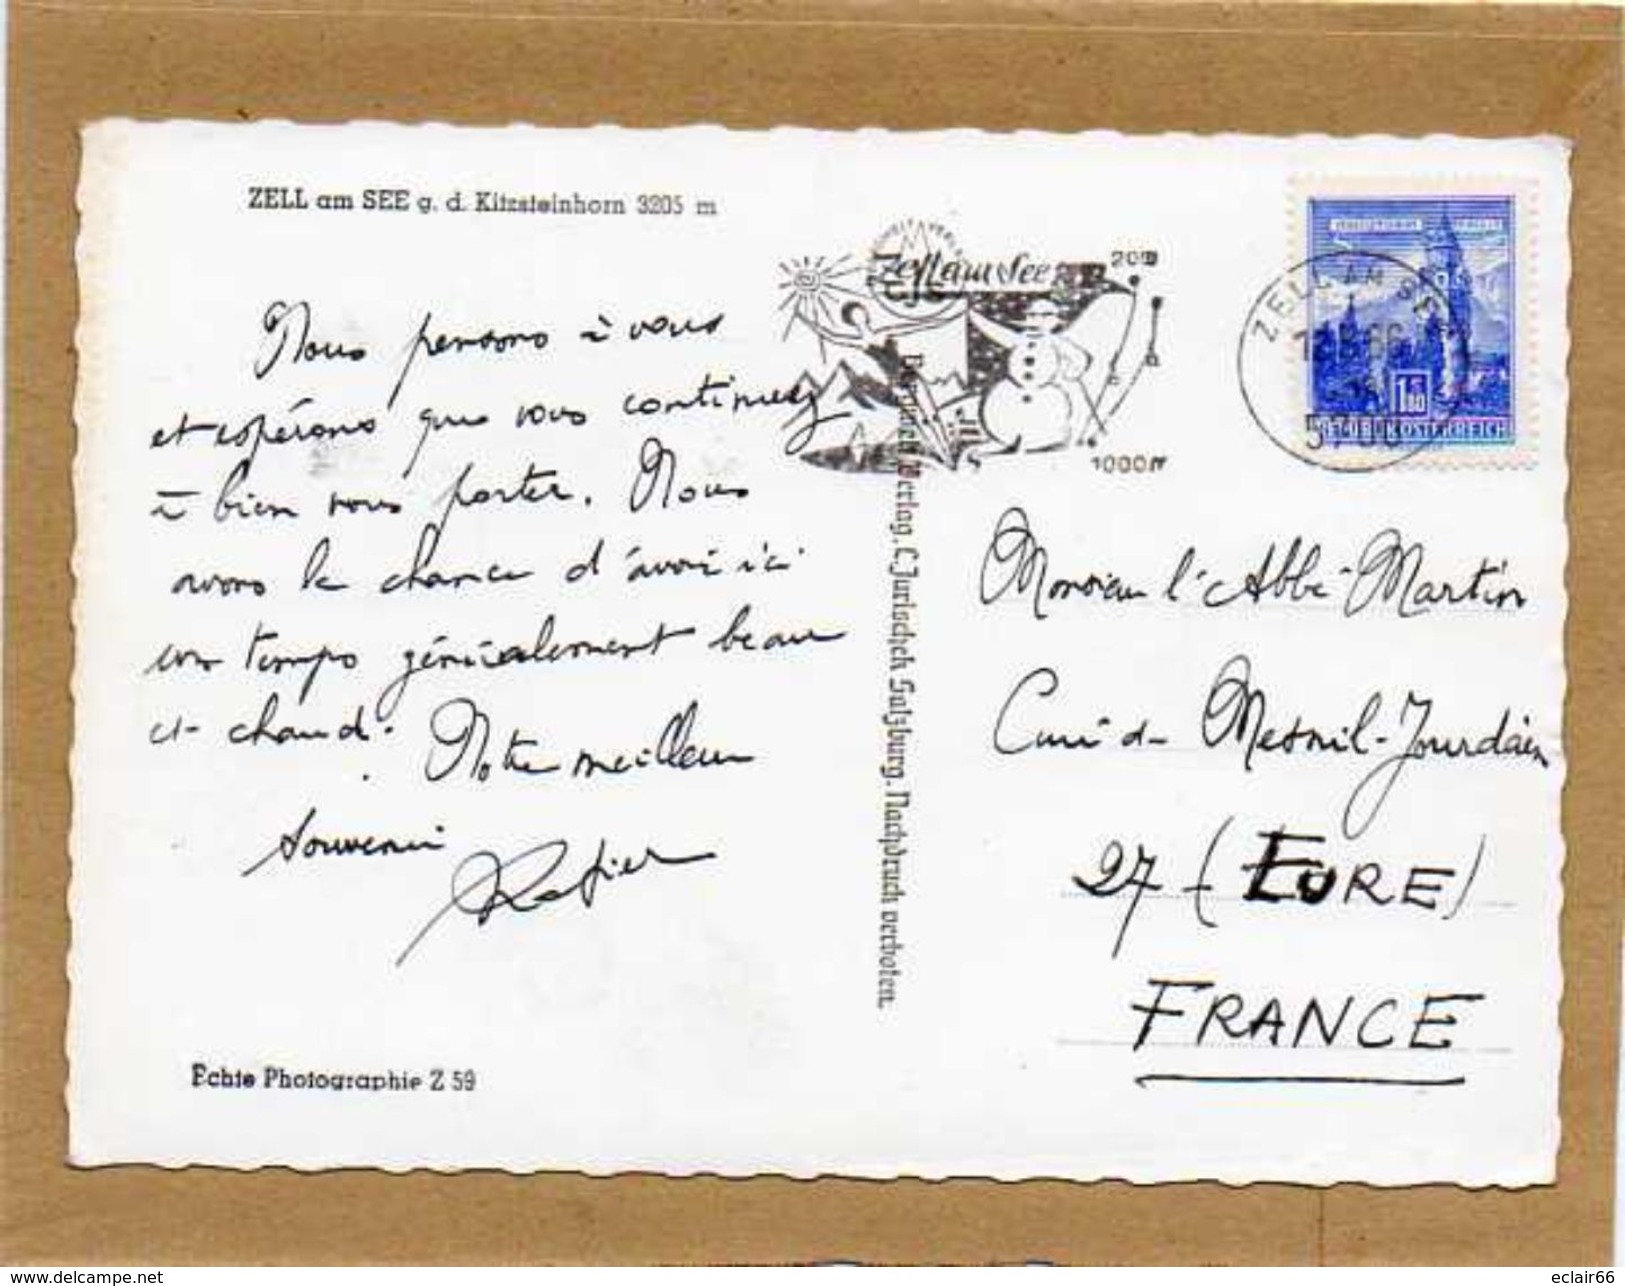 ZELL am SEE g. d. Kitzsteinhorn 3205 m
Nous pensons à vous
et espérons que vous continuez
à bien vous porter. Nous
avons la chance d'avoir ici
un temps généralement beau
et chaud. Notre meilleur
souvenir
Echte Photographie Z 59
Verlag. C. Jurischek Salzburg. Nachdruck verboten.
Zell am See
2000
1000 m
ZELL AM SEE
66
5700
1.80
REPUBLIK ÖSTERREICH
Monsieur l'Abbé Martin
Curé de Mesnil-Jourdain
27 - (EURE)
FRANCE
www.delcampe.net
eclair66